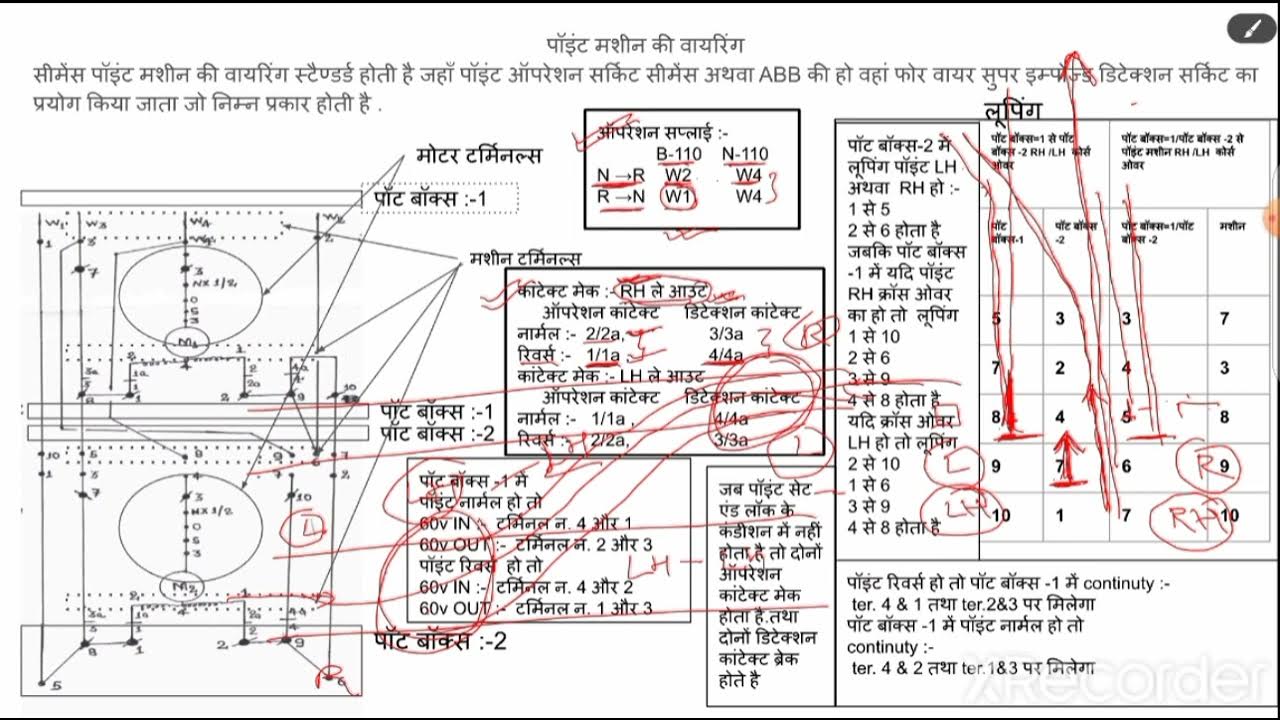 पॉइंट मशीन की वायरिंग
सीमेंस पॉइंट मशीन की वायरिंग स्टैण्डर्ड होती है जहाँ पॉइंट ऑपरेशन सर्किट सीमेंस अथवा ABB की हो वहां फोर वायर सुपर इम्पोज्ड डिटेक्शन सर्किट का
प्रयोग किया जाता जो निम्न प्रकार होती है .
मोटर टर्मिनल्स
पॉट बॉक्स :-1
मशीन टर्मिनल्स
पॉट बॉक्स :-1
पॉट बॉक्स :-2
पॉट बॉक्स :-2
ऑपरेशन सप्लाई :-
B-110 N-110
N →R W2 W4
R →N W1 W4
कांटेक्ट मेक :- RH ले आउट
ऑपरेशन कांटेक्ट डिटेक्शन कांटेक्ट
नार्मल :- 2/2a, 3/3a
रिवर्स :- 1/1a 4/4a
कांटेक्ट मेक :- LH ले आउट
ऑपरेशन कांटेक्ट डिटेक्शन कांटेक्ट
नार्मल :- 1/1a , 4/4a
रिवर्स :- 2/2a, 3/3a
पॉट बॉक्स -1 में
पॉइंट नार्मल हो तो
60v IN :- टर्मिनल न. 4 और 1
60v OUT :- टर्मिनल न. 2 और 3
पॉइंट रिवर्स हो तो
60v IN :- टर्मिनल न. 4 और 2
60v OUT :- टर्मिनल न. 1 और 3
LH
जब पॉइंट सेट
एंड लॉक के
कंडीशन में नहीं
होता है तो दोनों
ऑपरेशन
कांटेक्ट मेक
होता है.तथा
दोनों डिटेक्शन
कांटेक्ट ब्रेक
होते है
पॉट बॉक्स-2 में
लूपिंग पॉइंट LH
अथवा RH हो :-
1 से 5
2 से 6 होता है
जबकि पॉट बॉक्स
-1 में यदि पॉइंट
RH क्रॉस ओवर
का हो तो लूपिंग
1 से 10
2 से 6
3 से 9
4 से 8 होता है
यदि क्रॉस ओवर
LH हो तो लूपिंग
2 से 10
1 से 6
3 से 9
4 से 8 होता है
लूपिंग
पॉट बॉक्स=1 से पॉट बॉक्स -2 RH /LH क्रोर्स ओवर
पॉट बॉक्स=1/पॉट बॉक्स -2 से पॉइंट मशीन RH /LH क्रोर्स ओवर
पॉट बॉक्स-1 पॉट बॉक्स -2 पॉट बॉक्स=1/पॉट बॉक्स -2 मशीन
5 3 3 7
7 2 4 3
8 4 5 8
9 7 6 9
10 1 7 10
पॉइंट रिवर्स हो तो पॉट बॉक्स -1 में continuty :-
ter. 4 & 1 तथा ter.2&3 पर मिलेगा
पॉट बॉक्स -1 में पॉइंट नार्मल हो तो
continuty :-
ter. 4 & 2 तथा ter.1&3 पर मिलेगा
XRecorder